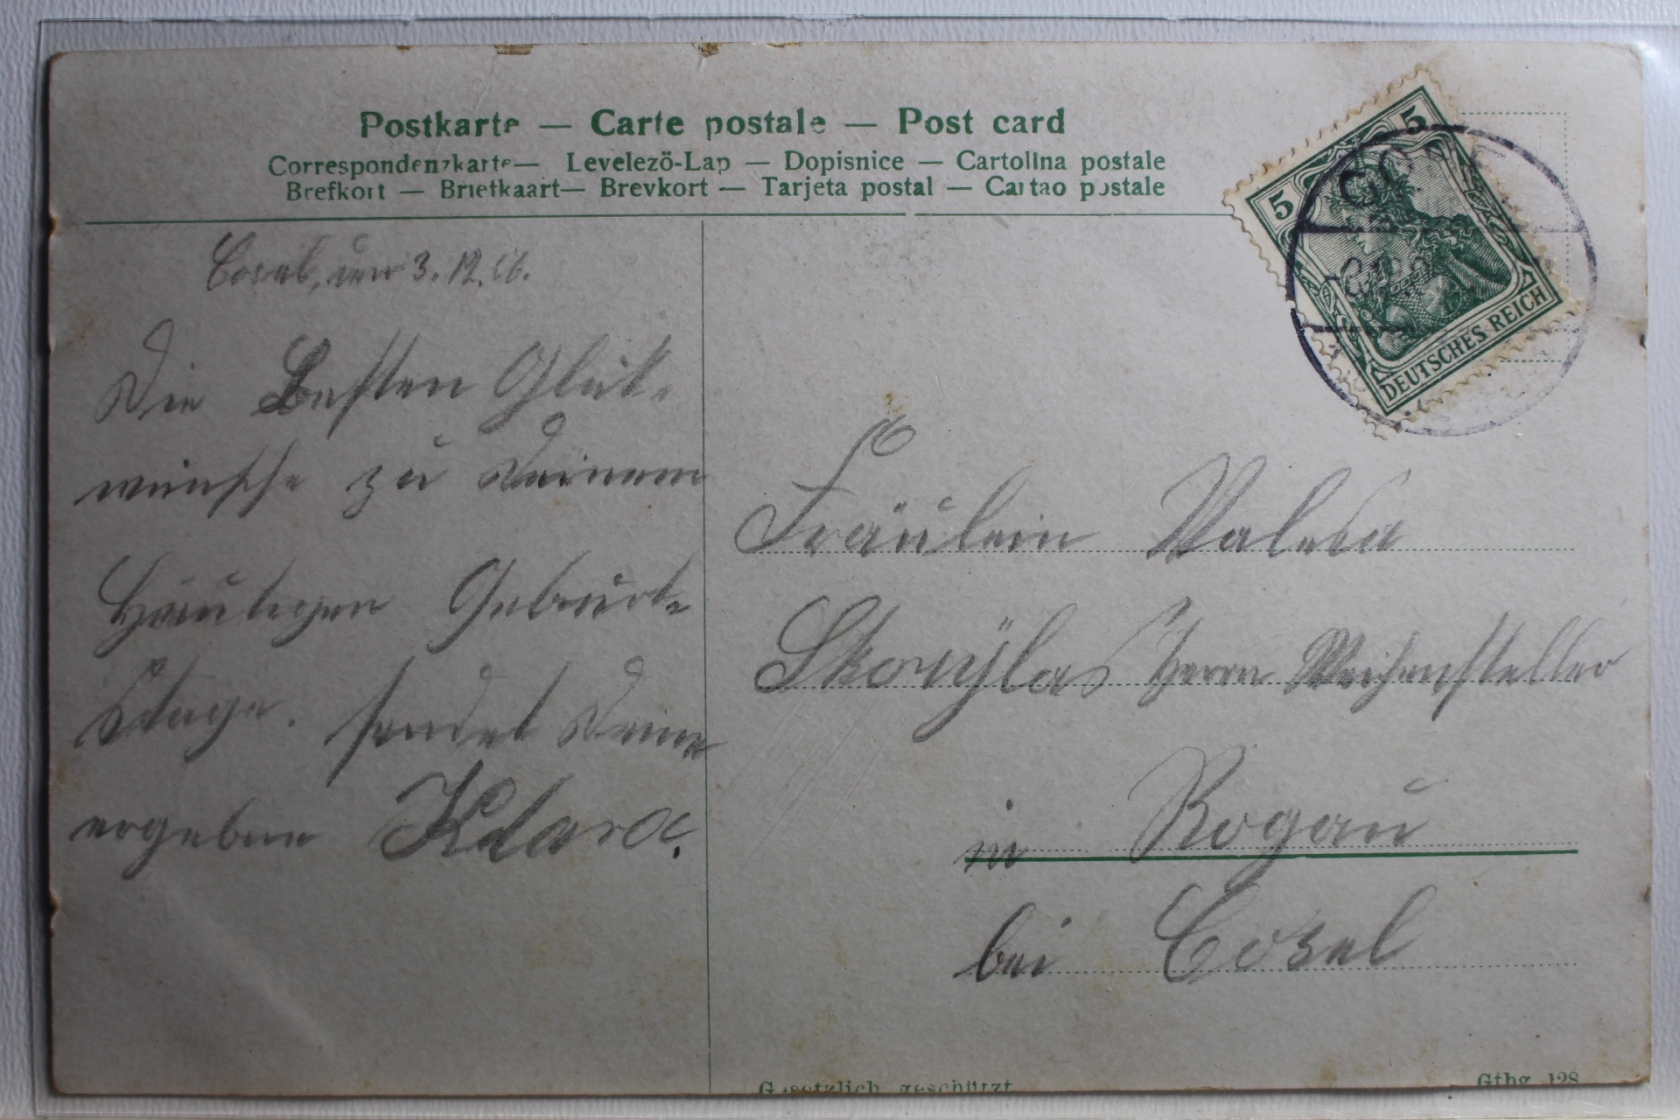 Postkarte — Carte postale — Post card
Correspondenzkarte — Levelezö-Lap — Dopisnice — Cartolina postale
Brefkort — Briefkaart — Brevkort — Tarjeta postal — Cartao postale
5 5
DEUTSCHES REICH
Cosel, den 3.12.
Die Besten Glük-
wünsche zu Deinem
Häutigen Geburt-
stage. sendet Deine
ergebene Klara.
Fräulein Valeska
Herrn Weichensteller
in Rogau
bei Cosel
Gesetzlich geschützt
Gthg. 128